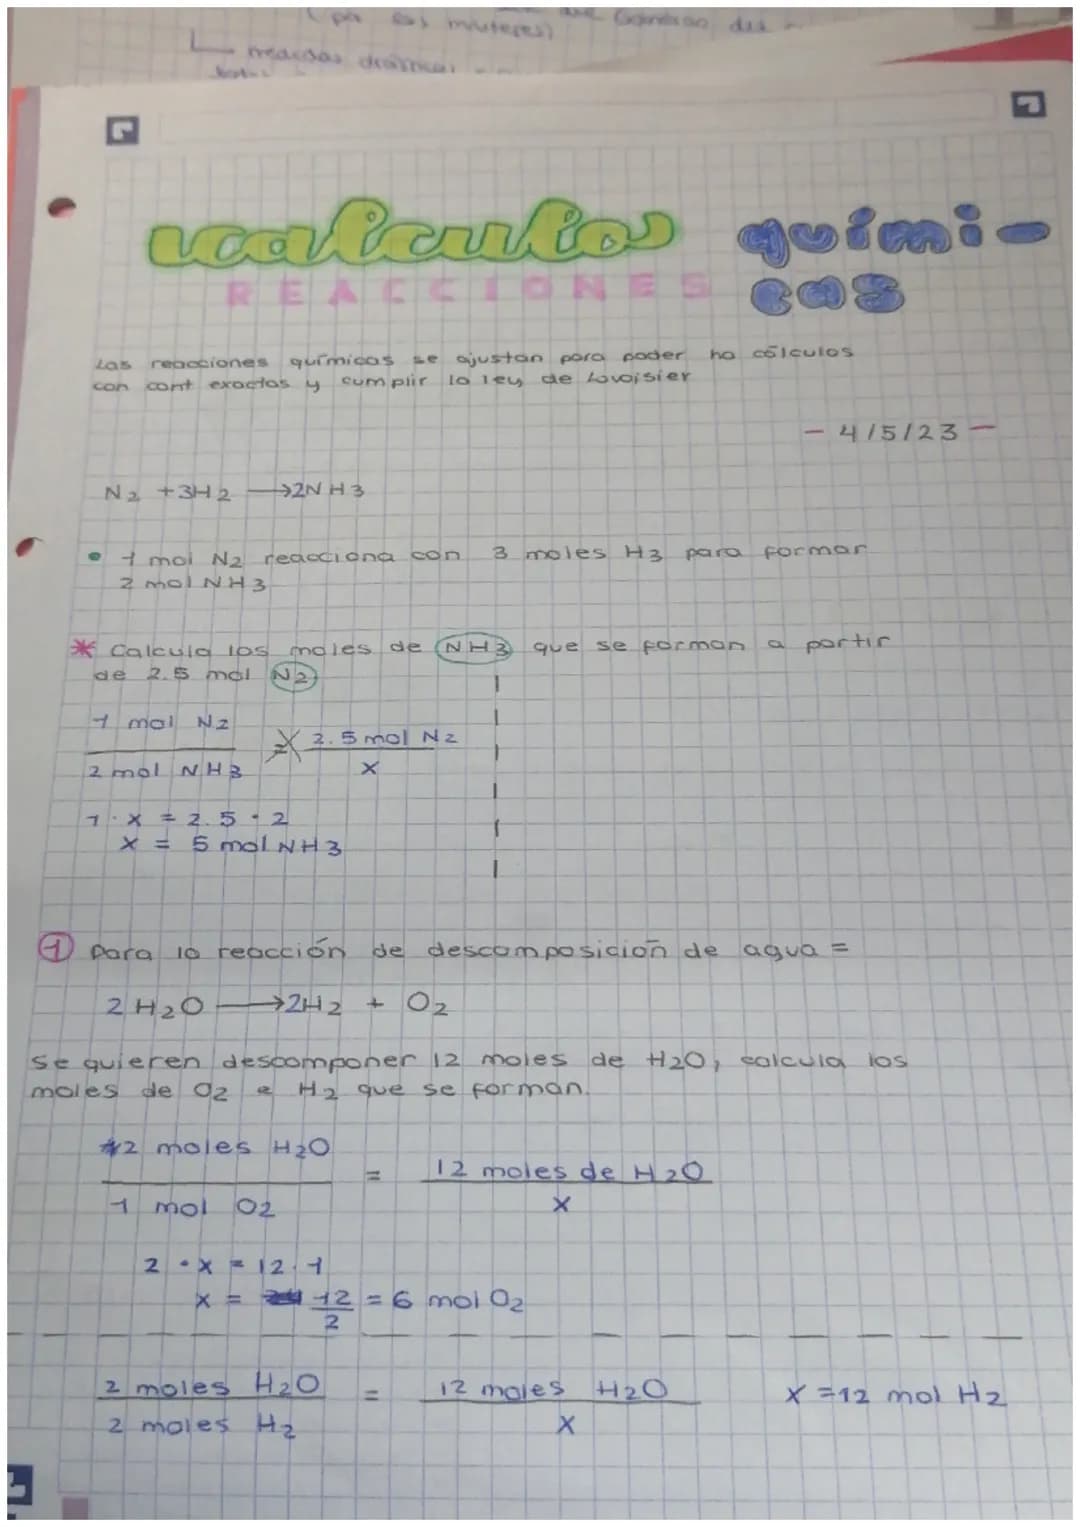 calculos quími-
cas
REACCIONES
Las reacciones químicas se ajustan para poder ha cálculos
con cant exactas y cumplir la ley de Lavoisier
- 4/5/23 -
N2 + 3H2 → 2NH3
• 1 mol N2 reacciona con 3 moles H3 para formar
2 mol NH3
* Calcula los moles de NH3 que se forman a partir
de 2.5 mol N2
1 mol N2
2 mol NH3
= 2.5 mol N2
x
1 · x = 2.5 · 2
x = 5 mol NH3
1 Para la reacción de descomposición de agua =
2 H2O → 2H2 + O2
se quieren descomponer 12 moles de H2O, calcula los
moles de O2 e H2 que se forman.
2 moles H2O = 12 moles de H2O
1 mol O2 x
2 · x = 12 · 1
x = 12 = 6 mol O2
2
2 moles H2O = 12 moles H2O x = 12 mol H2
2 moles H2 x